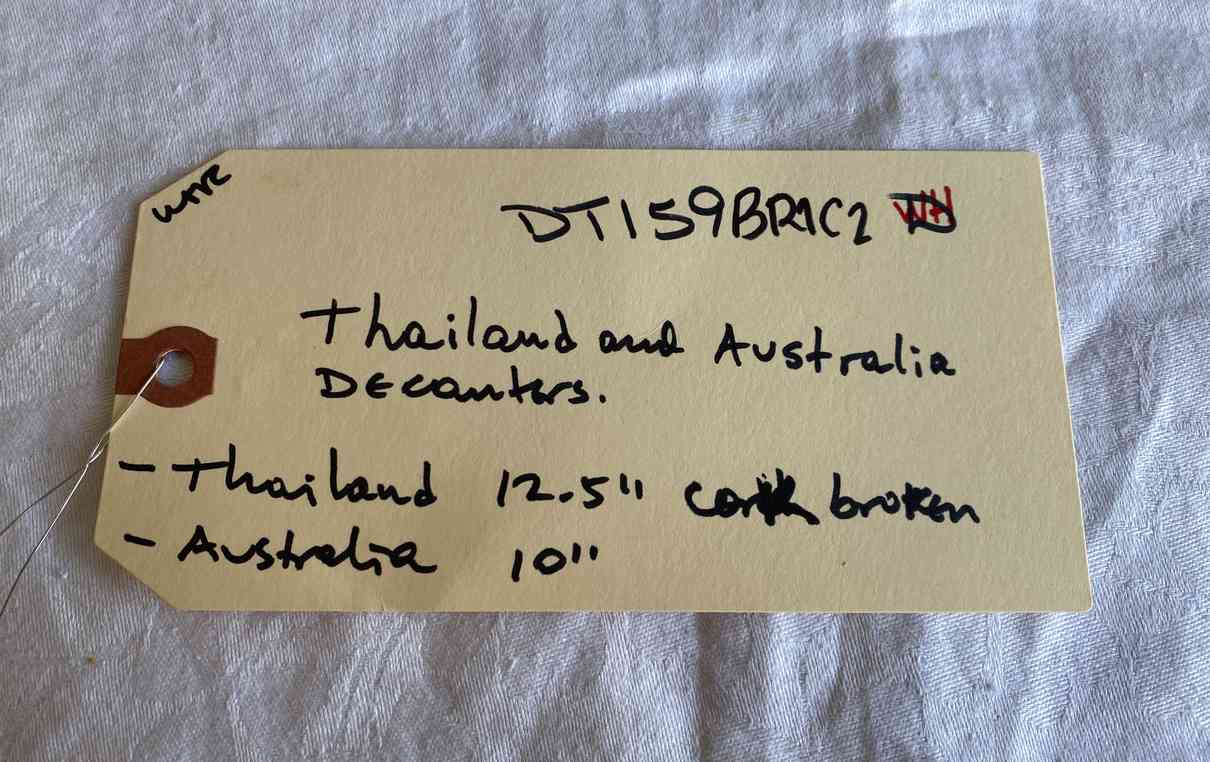 DT159BR1C2 WH
Thailand and Australia
Decanters.
- Thailand 12.5" cork broken
- Australia 10"